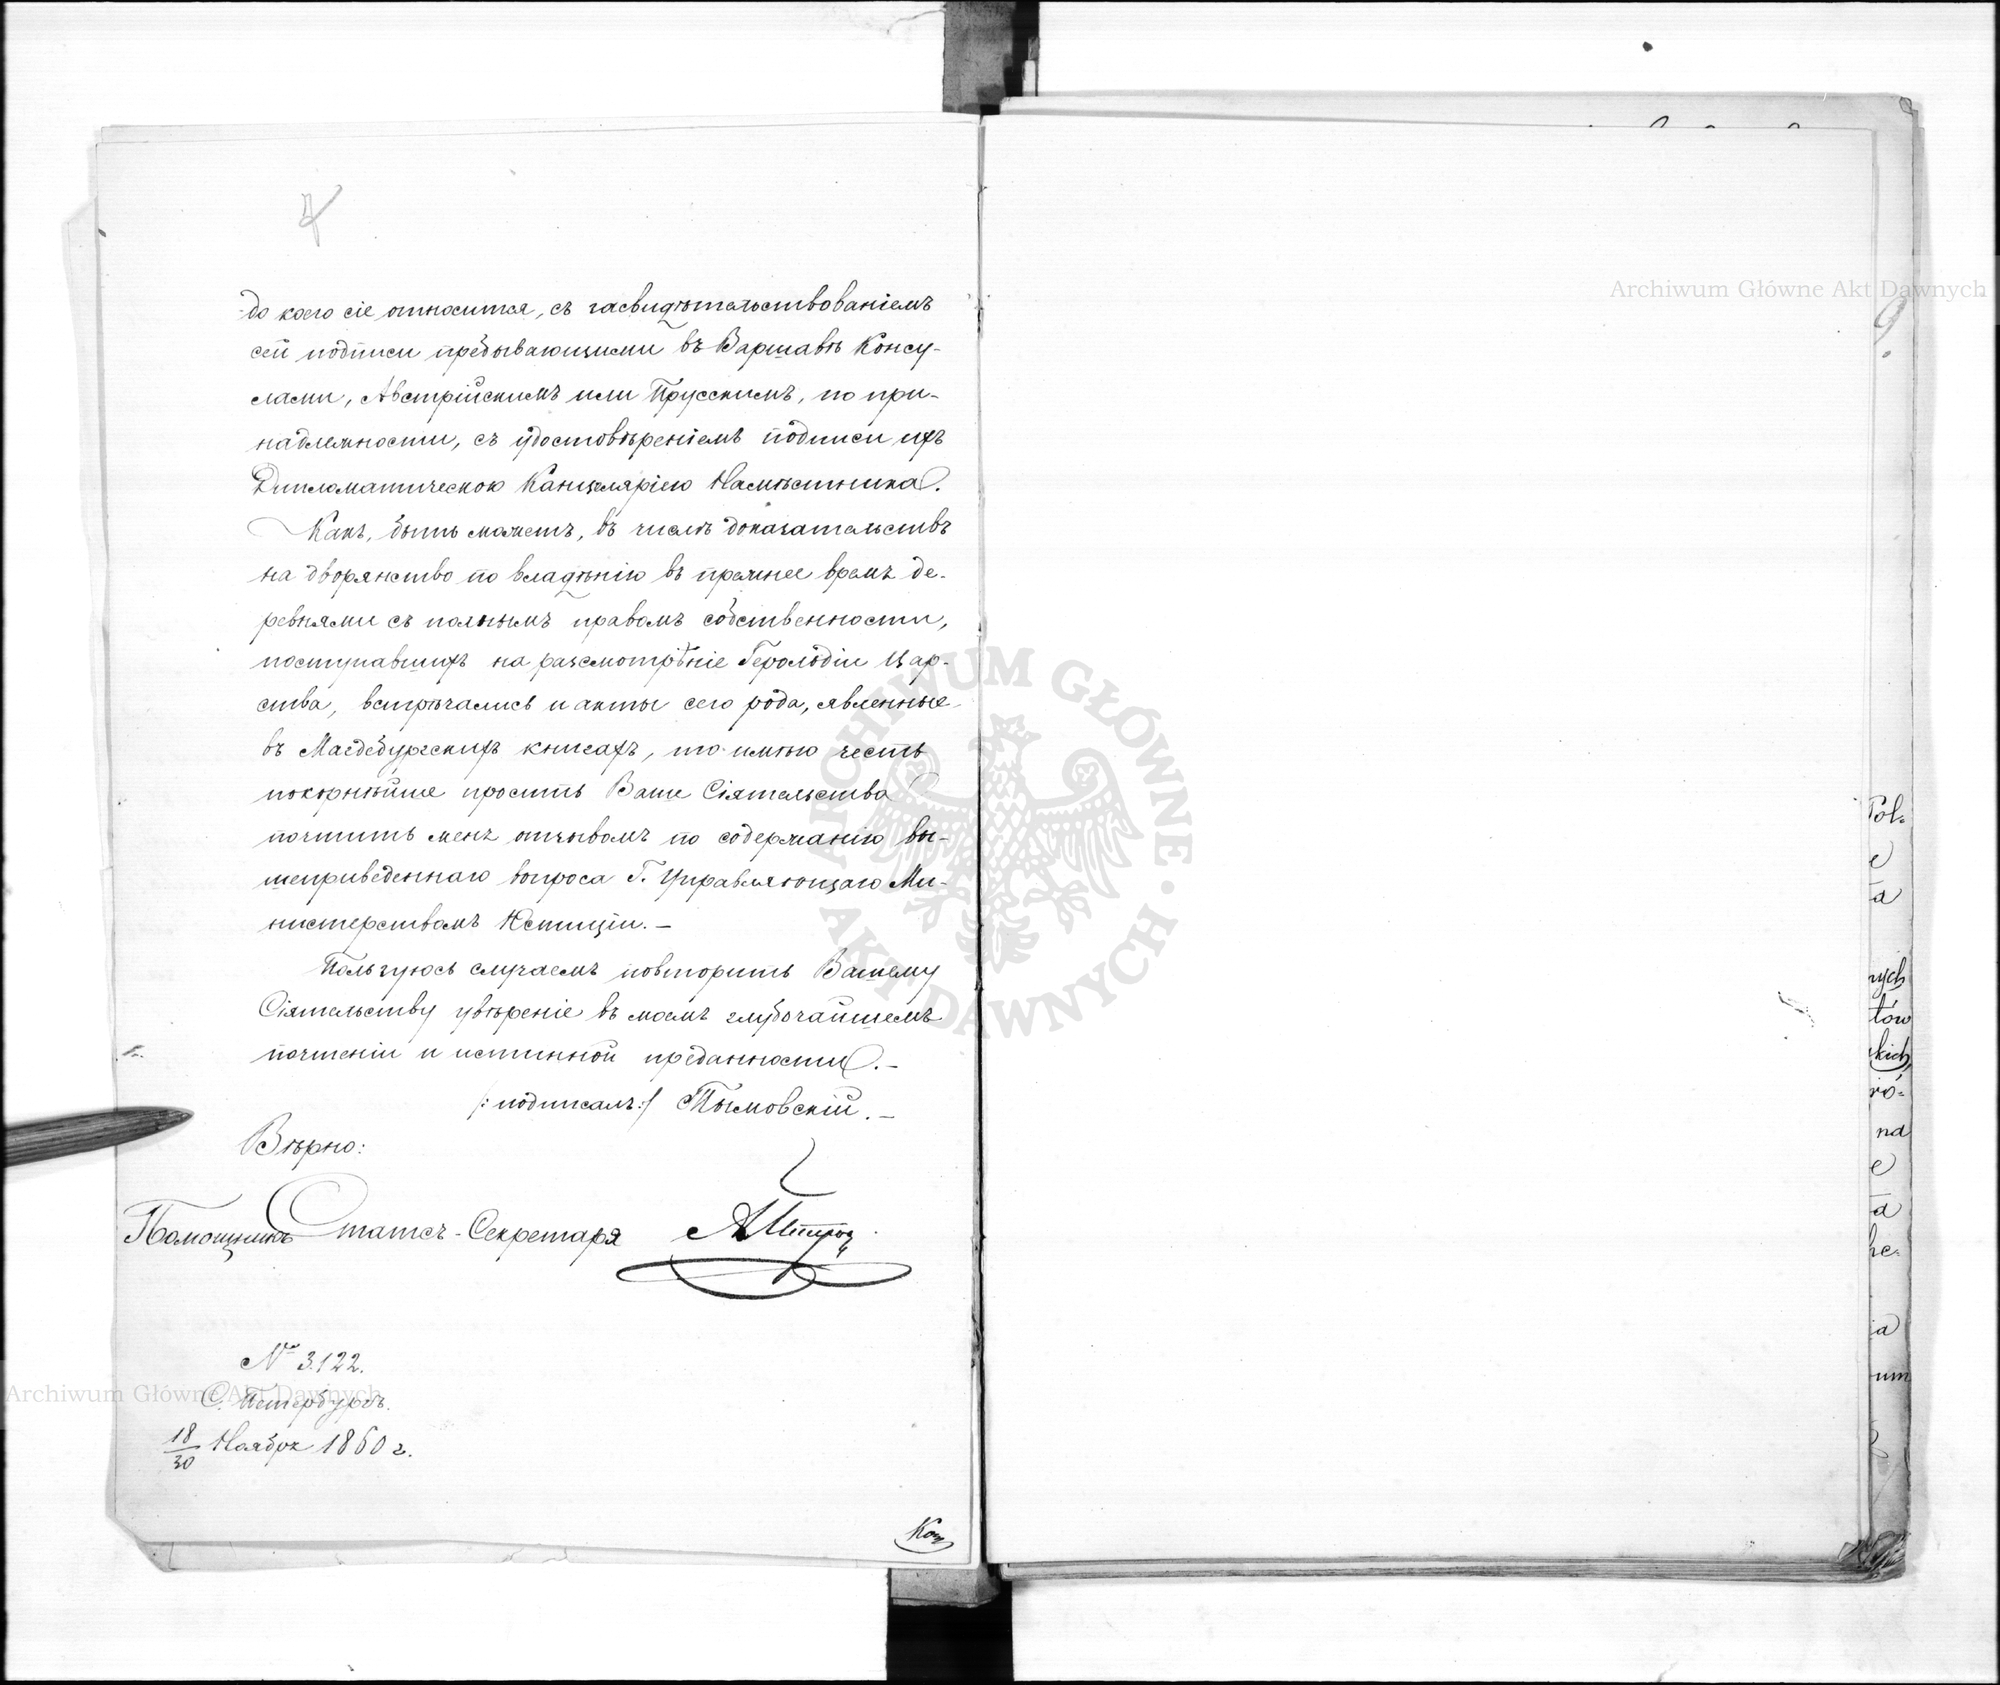 до коего сіе относится, съ засвидѣтельствованіемъ
сей подписи пребывающими въ Варшавѣ Консу-
лами, Австрійскимъ или Прусскимъ, по при-
надлежности, съ удостовѣреніемъ подписи ихъ
Дипломатическою Канцеляріею Намѣстника.
Какъ, быть можетъ, въ числѣ доказательствъ
на дворянство по владѣнію въ прежнее время де-
ревнями съ полнымъ правомъ собственности,
поступавшихъ на разсмотрѣніе Герольдіи Цар-
ства, встрѣчались и акты сего рода, явленные
въ Магдебургскихъ книгахъ, то имѣю честь
покорнѣйше просить Ваше Сіятельство
почтить меня отзывомъ по содержанію вы-
шеприведеннаго вопроса Г. Управляющаго Ми-
нистерствомъ Юстиціи. —
Пользуюсь случаемъ повторить Вашему
Сіятельству увѣреніе въ моемъ глубочайшемъ
почтеніи и истинной преданности. —
/:подписалъ:/ Тымовскій. —
Вѣрно:
Помощникъ Статсъ-Секретаря
№ 3122.
С. Петербургъ.
18/30 Ноября 1860 г.
Archiwum Główne Akt Dawnych
9.
Pol-
e
a
nych
tów
kich,
ró-
na
e
a
he-
a
um
ARCHIWUM GŁÓWNE AKT DAWNYCH
Archiwum Główne Akt Dawnych